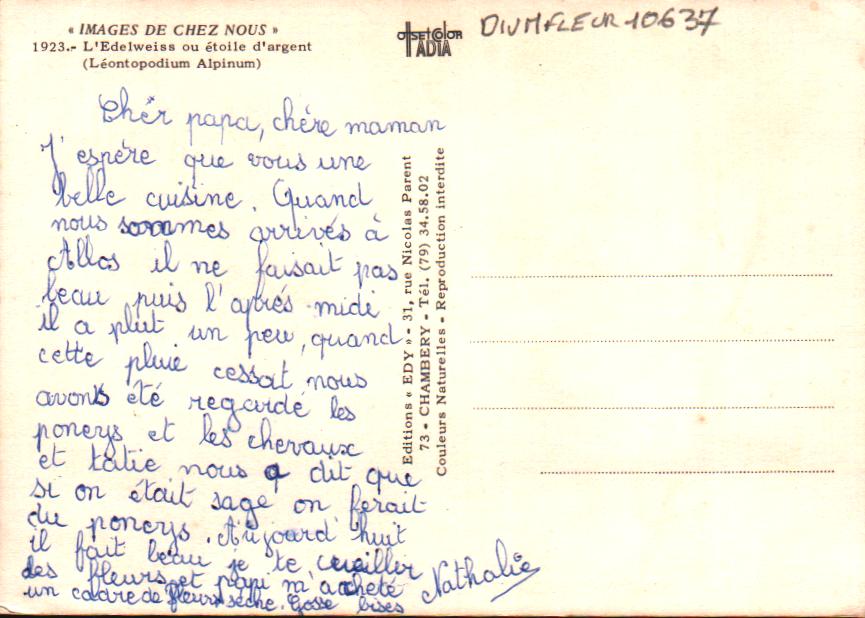 « IMAGES DE CHEZ NOUS »
1923.- L'Edelweiss ou étoile d'argent
(Léontopodium Alpinum)
OFFSET COLOR
ADIA
DIUMFLEUR 10637
Chèr papa, chère maman
J'espère que vous une
belle cuisine. Quand
nous sommes arrivés à
Allos il ne faisait pas
beau puis l'après midi
il a plut un peu, quand
cette pluie cessait nous
avons été regardé les
poneys et les chevaux
et tatie nous a dit que
si on était sage on ferait
du poneys. Aujourd'huit
il fait beau je te cueiller
des fleurs et papi m'a acheté
un cadre de fleurs sèche. Gosse bises
Nathalie
Editions « EDY » - 31, rue Nicolas Parent
73 - CHAMBERY - Tél. (79) 34.58.02
Couleurs Naturelles - Reproduction interdite